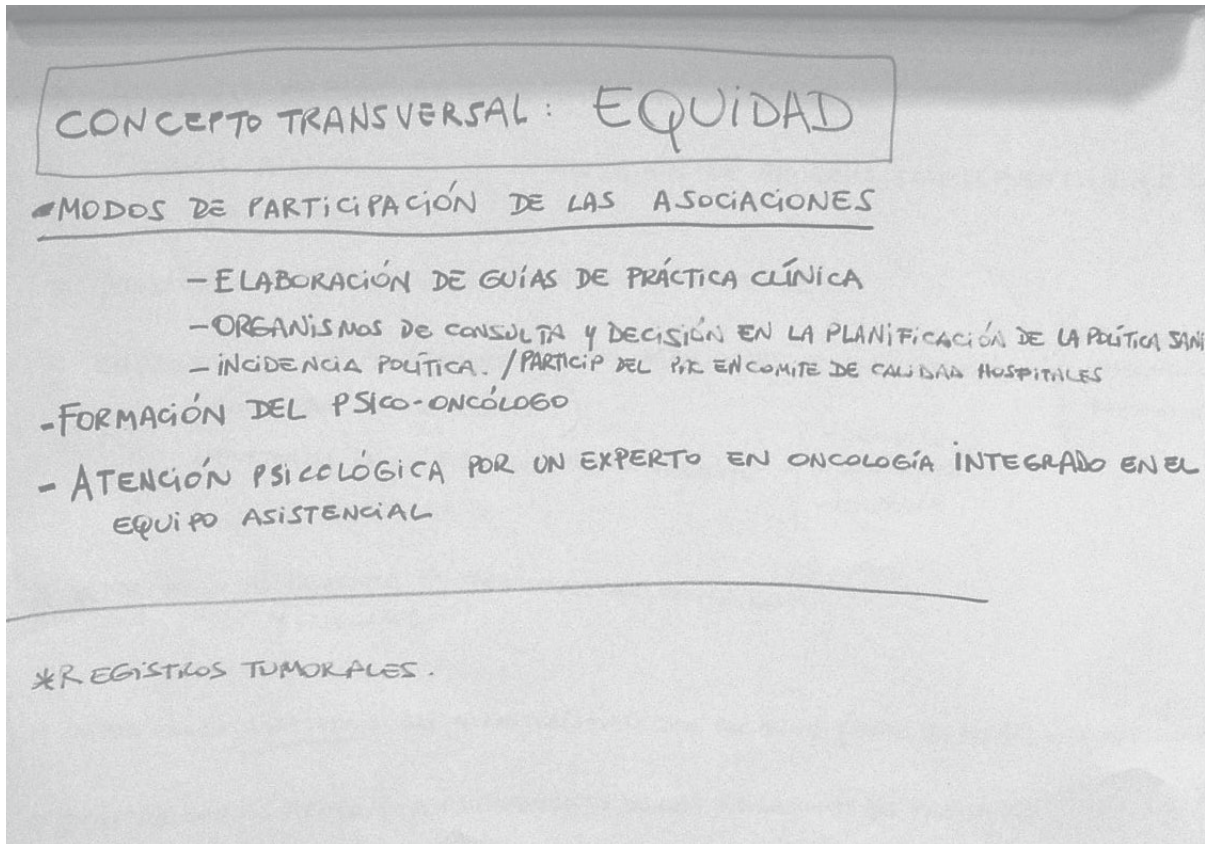 CONCEPTO TRANSVERSAL: EQUIDAD
- MODOS DE PARTICIPACIÓN DE LAS ASOCIACIONES
- ELABORACIÓN DE GUÍAS DE PRÁCTICA CLÍNICA
- ORGANISMOS DE CONSULTA Y DECISIÓN EN LA PLANIFICACIÓN DE LA POLÍTICA SANI
- INCIDENCIA POLÍTICA. / PARTICIP DEL EN COMITE DE CALIDAD HOSPITALES
- FORMACIÓN DEL PSICO-ONCÓLOGO
- ATENCIÓN PSICOLÓGICA POR UN EXPERTO EN ONCOLOGÍA INTEGRADO EN EL
EQUIPO ASISTENCIAL
*REGISTROS TUMORALES.